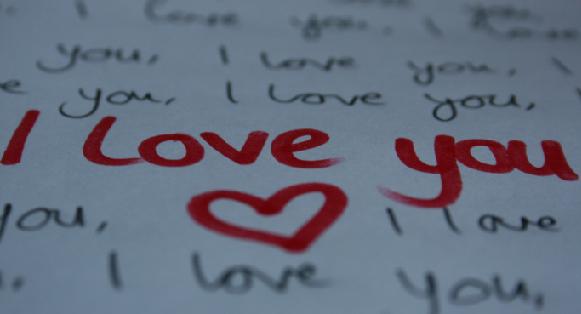 I love you, I love
you, I love you, I
e you, I love you, I
I love you
you, I love
I love you,